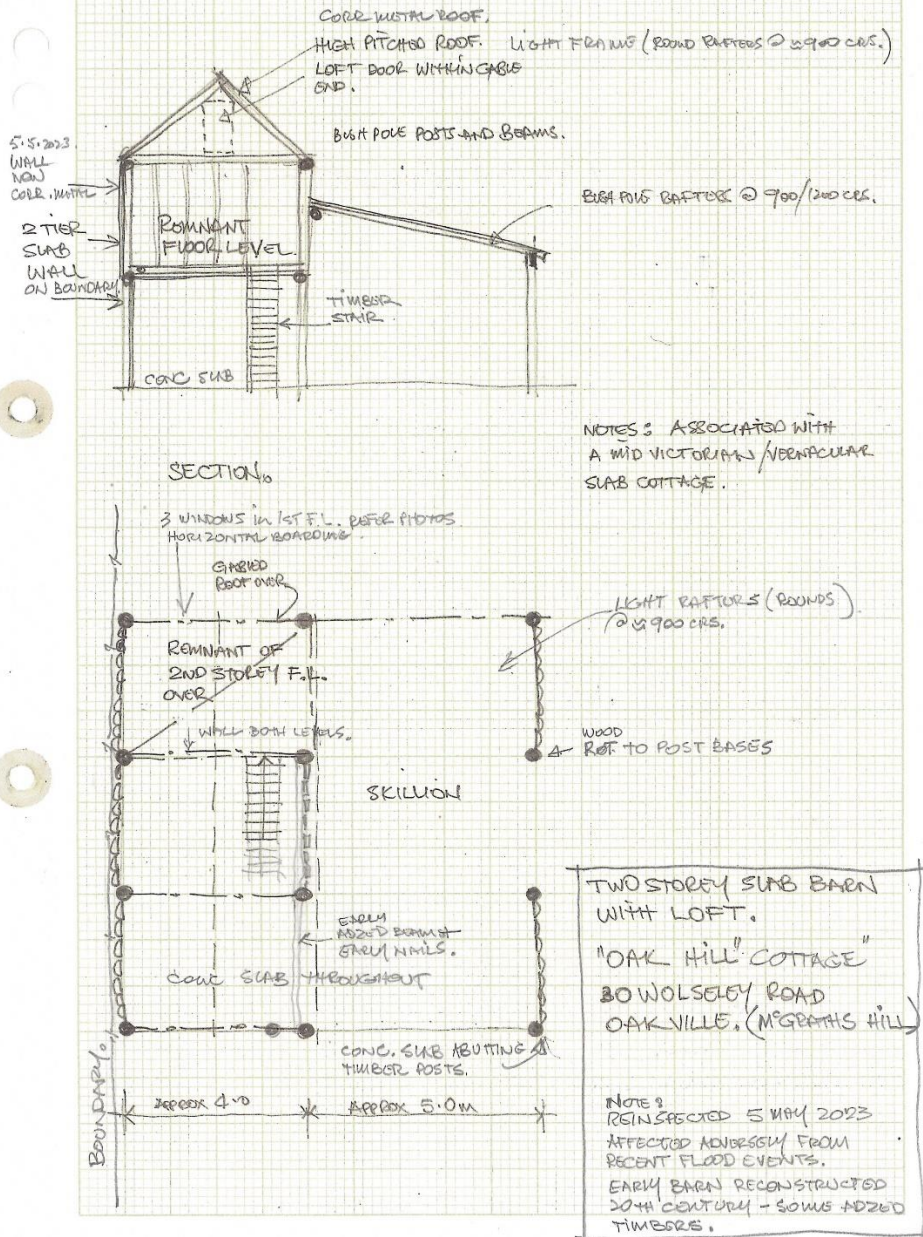 CORR METAL ROOF.
HIGH PITCHED ROOF. LIGHT FRAME (ROUND RAFTERS @ ≈900 CRS.)
LOFT DOOR WITHIN GABLE
END.
BUSH POLE POSTS AND BEAMS.
5.5.2023
WALL
NOW
CORR. METAL
2 TIER
SLAB
WALL
ON BOUNDARY
REMNANT
FLOOR LEVEL.
BUSH POLE RAFTERS @ 900/1200 CRS.
TIMBER
STAIR
CONC SLAB
NOTES: ASSOCIATED WITH
A MID VICTORIAN/VERNACULAR
SLAB COTTAGE.
SECTION.
3 WINDOWS in 1ST F.L. REFER PHOTOS
HORIZONTAL BOARDING
GABLED
ROOF OVER
LIGHT RAFTERS (ROUNDS)
@ ≈900 CRS.
REMNANT OF
2ND STOREY F.L.
OVER
WALL BOTH LEVELS.
WOOD
ROT TO POST BASES
SKILLION
EARLY
ADZED BEAM &
EARLY NAILS.
CONC SLAB THROUGHOUT
CONC. SLAB ABUTTING
TIMBER POSTS.
BOUNDARY.
APPROX 4.0
APPROX 5.0m
TWO STOREY SLAB BARN
WITH LOFT.
"OAK HILL" COTTAGE"
30 WOLSELEY ROAD
OAKVILLE. (McGRATHS HILL)
NOTE:
REINSPECTED 5 MAY 2023
AFFECTED ADVERSELY FROM
RECENT FLOOD EVENTS.
EARLY BARN RECONSTRUCTED
20TH CENTURY - SOME ADZED
TIMBERS.